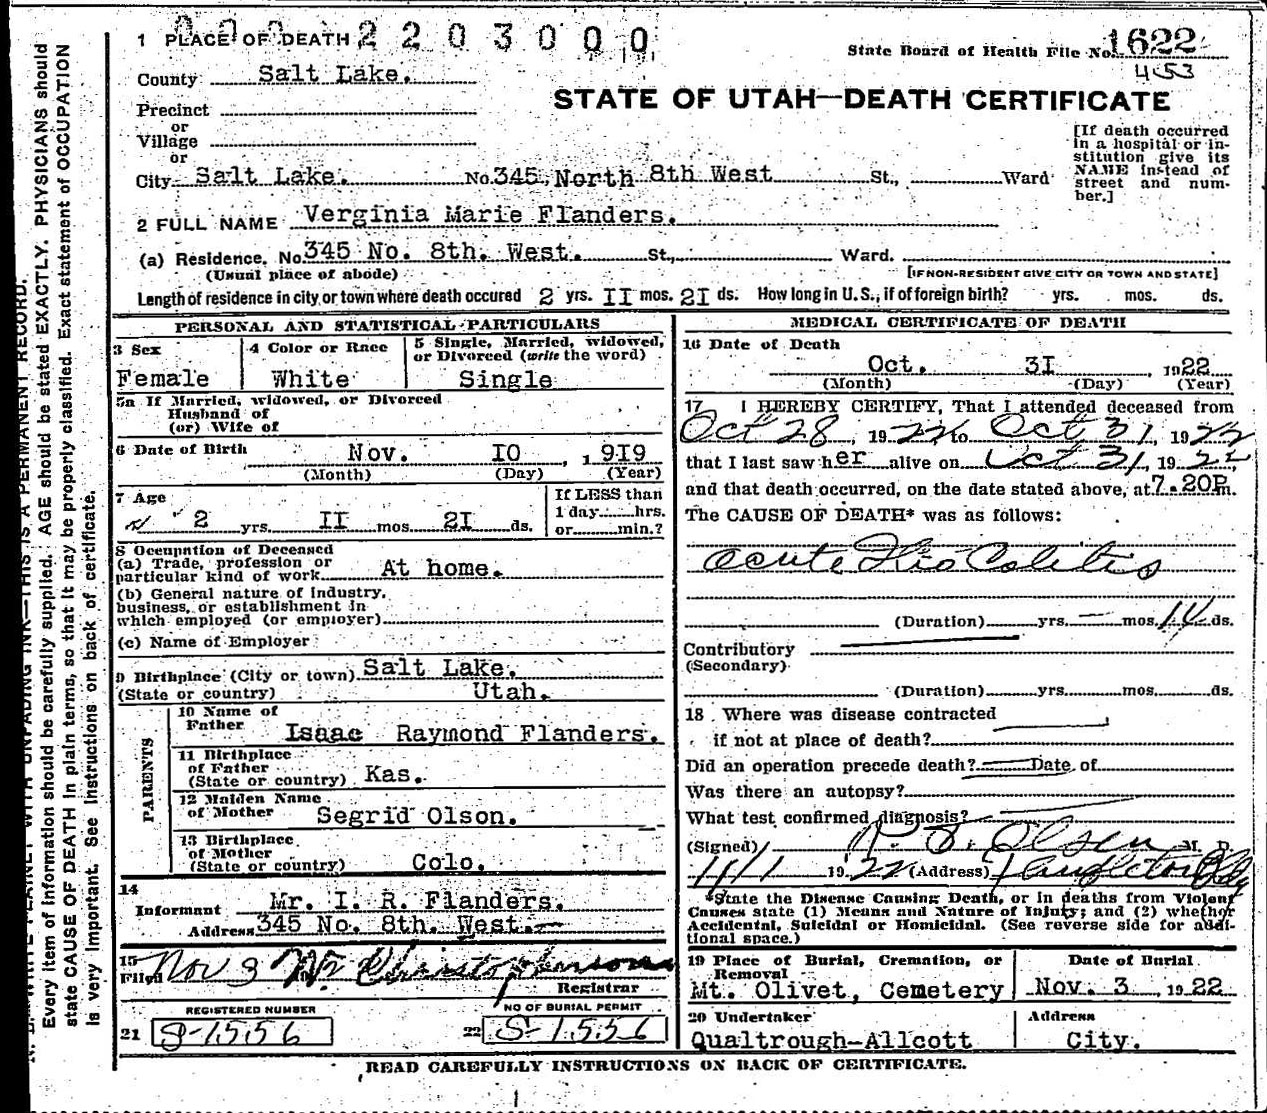 0 0 0 2 2 0 3 0 0 0
1 PLACE OF DEATH
State Board of Health File No. 1622
453
County Salt Lake.
STATE OF UTAH—DEATH CERTIFICATE
Precinct
or
Village
or
City Salt Lake. No. 345, North 8th West St., Ward
[If death occurred
in a hospital or in-
stitution give its
NAME instead of
street and num-
ber.]
2 FULL NAME Verginia Marie Flanders.
(a) Residence. No. 345 No. 8th. West. St., Ward.
(Usual place of abode)
[IF NON-RESIDENT GIVE CITY OR TOWN AND STATE]
Length of residence in city or town where death occured 2 yrs. II mos. 2I ds. How long in U.S., if of foreign birth? yrs. mos. ds.
PERSONAL AND STATISTICAL PARTICULARS
3 Sex
Female
4 Color or Race
White
5 Single, Married, widowed,
or Divorced (write the word)
Single
5a If Married, widowed, or Divorced
Husband of
(or) Wife of
6 Date of Birth Nov. IO , 1919
(Month) (Day) (Year)
7 Age
2 yrs. II mos. 2I ds.
If LESS than
1 day hrs.
or min.?
8 Occupation of Deceased
(a) Trade, profession or
particular kind of work At home.
(b) General nature of Industry,
business, or establishment in
which employed (or employer)
(c) Name of Employer
9 Birthplace (City or town) Salt Lake.
(State or country) Utah.
PARENTS
10 Name of
Father Isaac Raymond Flanders.
11 Birthplace
of Father
(State or country) Kas.
12 Maiden Name
of Mother Segrid Olson.
13 Birthplace
of Mother
(State or country) Colo.
14
Informant Mr. I. R. Flanders.
Address 345 No. 8th. West.
15
Filed Nov 3
Registrar
REGISTERED NUMBER
21 S-1556
NO OF BURIAL PERMIT
22 S-1556
MEDICAL CERTIFICATE OF DEATH
16 Date of Death
Oct. 3I , 1922
(Month) (Day) (Year)
17 I HEREBY CERTIFY, That I attended deceased from
Oct 28, 1922 to Oct 31, 1922
that I last saw her alive on Oct 31, 1922,
and that death occurred, on the date stated above, at 7.20P.m.
The CAUSE OF DEATH* was as follows:
acute Ilio Colitis
(Duration) yrs. mos. 14 ds.
Contributory
(Secondary)
(Duration) yrs. mos. ds.
18 Where was disease contracted
if not at place of death?
Did an operation precede death? Date of
Was there an autopsy?
What test confirmed diagnosis?
(Signed) Olsen M. D.
11/1 1922 (Address) Templeton Bldg
*State the Disease Causing Death, or in deaths from Violent
Causes state (1) Means and Nature of Injury; and (2) whether
Accidental, Suicidal or Homicidal. (See reverse side for addi-
tional space.)
19 Place of Burial, Cremation, or
Removal
Mt. Olivet, Cemetery
Date of Burial
Nov. 3 , 1922
20 Undertaker
Qualtrough-Allcott
Address
City.
READ CAREFULLY INSTRUCTIONS ON BACK OF CERTIFICATE.
WRITE PLAINLY WITH UNFADING INK—THIS IS A PERMANENT RECORD.
Every item of information should be carefully supplied. AGE should be stated EXACTLY. PHYSICIANS should
state CAUSE OF DEATH in plain terms, so that it may be properly classified. Exact statement of OCCUPATION
is very important. See instructions on back of certificate.